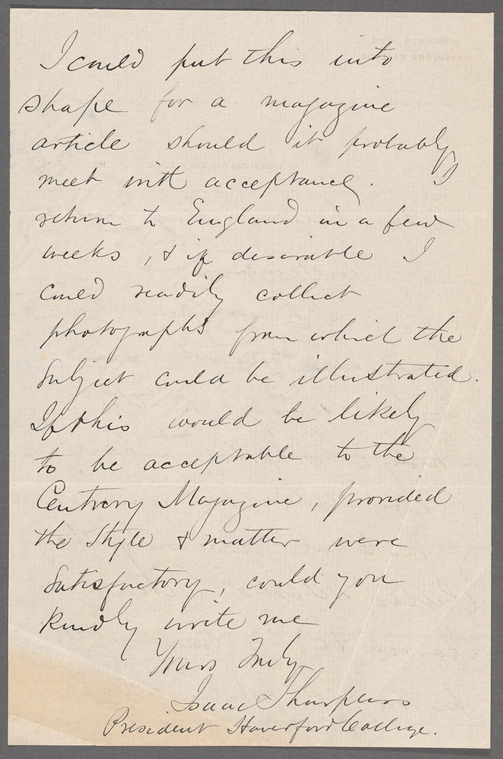 I could put this into
shape for a magazine
article should it probably
meet with acceptance. I
return to England in a few
weeks, & if desirable I
could readily collect
photographs from which the
subject could be illustrated.
If this would be likely
to be acceptable to the
Century Magazine, provided
the style & matter were
satisfactory, could you
kindly write me
Yours Truly,
Isaac Sharpless
President Haverford College.